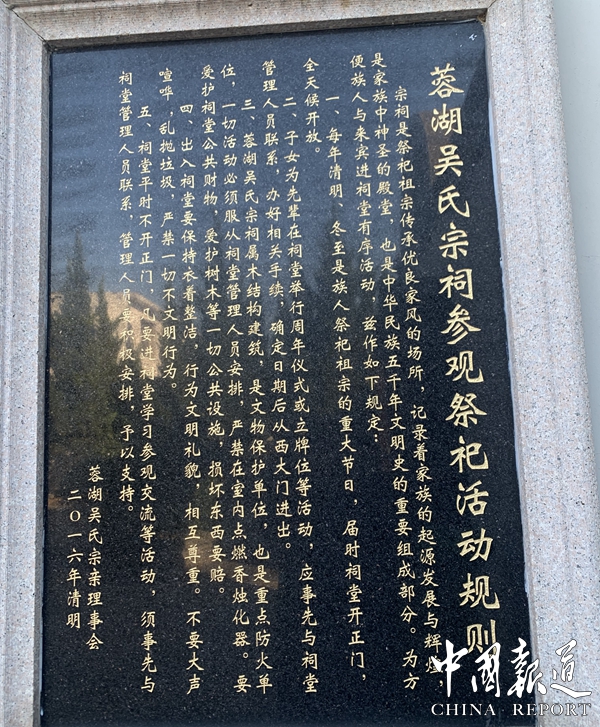 蓉湖吴氏宗祠参观祭祀活动规则
宗祠是祭祀祖宗传承优良家风的场所，记录着家族的起源发展与辉煌，
是家族中神圣的殿堂，也是中华民族五千年文明史的重要组成部分。为方
便族人与来宾进祠堂有序活动，兹作如下规定：
一、每年清明、冬至是族人祭祀祖宗的重大节日，届时祠堂开正门，
全天候开放。
二、子女为先辈在祠堂举行周年仪式或立牌位等活动，应事先与祠堂
管理人员联系，办好相关手续，确定日期后从西大门进出。
三、蓉湖吴氏宗祠属木结构建筑，是文物保护单位，也是重点防火单
位，一切活动必须服从祠堂管理人员安排，严禁在室内点燃香烛化器。要
爱护祠堂公共财物，爱护树木等一切公共设施，损坏东西要赔。
四、出入祠堂要保持衣着整洁，行为文明礼貌，相互尊重。不要大声
喧哗，乱抛垃圾，严禁一切不文明行为。
五、祠堂平时不开正门，凡要进祠堂学习参观交流等活动，须事先与
祠堂管理人员联系，管理人员要积极安排，予以支持。
蓉湖吴氏宗亲理事会
二〇一六年清明
中國報道
CHINA REPORT